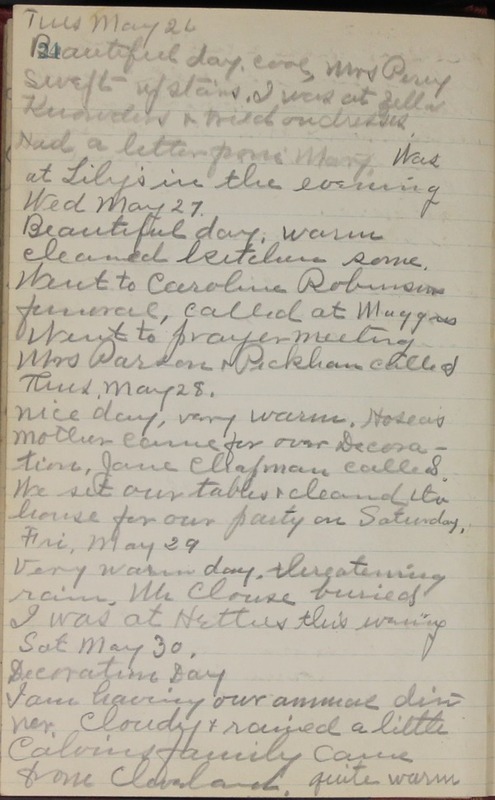 Tues May 26
31
Beautiful day. cool, Mrs Perry
Swept upstairs. I was at Zella
& tried on dresses
Had a letter from Mary. Was
at Lily's in the evening
Wed May 27.
Beautiful day. warm
cleaned kitchen some.
Went to Caroline Robinson
funeral, called at Maggies
Went to prayer meeting
Mrs Parson & Peckham called
Thus, May 28.
nice day, very warm. Hosea's
Mother came for over Decora-
tion, Jane Chapman called.
We set our tables & cleand the
house for our party on Saturday.
Fri, May 29
Very warm day. threatening
rain. Mr Clouse buried
I was at Hetties this evening
Sat May 30.
Decoration Day
I am having our annual din
ner. Cloudy & rained a little
Calvins family came
from Cleveland. quite warm